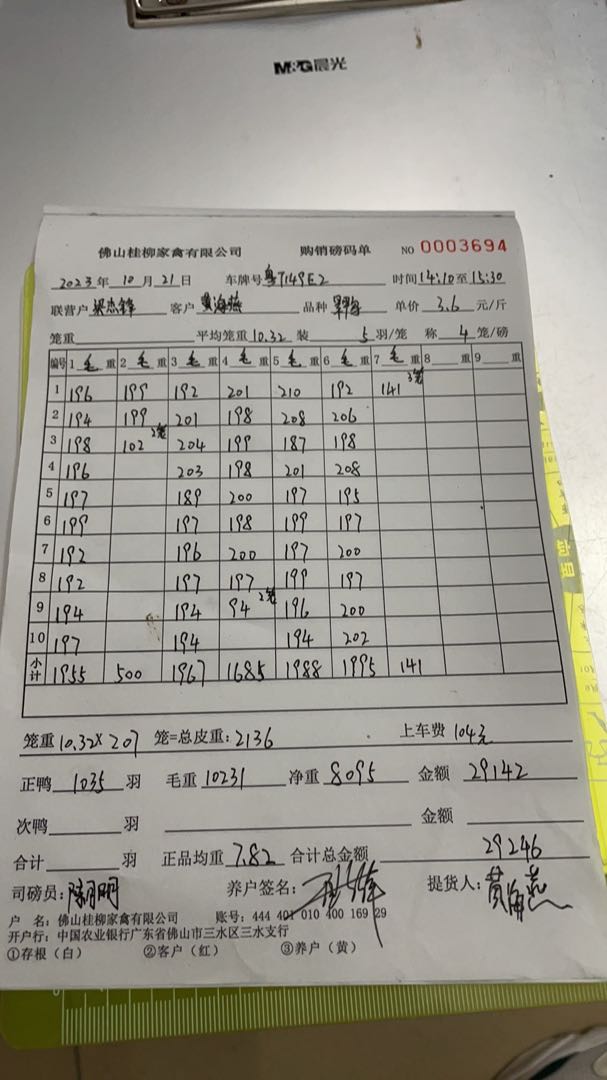 M&G晨光
佛山桂柳家禽有限公司 购销磅码单 NO 0003694
2023年 10月 21日 车牌号 粤T149E2 时间 14:10 至 15:30
联营户 梁杰锋 客户 黄海燕 品种 单价 3.6 元/斤
笼重 平均笼重 10.32 装 5 羽/笼 称 4 笼/磅
编号 1 毛 重 2 毛 重 3 毛 重 4 毛 重 5 毛 重 6 毛 重 7 毛 重 8 重 9 重
1 196 199 192 201 210 192 141 3笼
2 194 199 201 198 208 206
3 198 102 2笼 204 199 187 198
4 196 203 198 201 208
5 197 189 200 197 195
6 199 197 198 199 197
7 192 196 200 197 200
8 192 197 197 199 197
9 194 194 94 2笼 196 200
10 197 194 194 202
小计 1955 500 1967 1685 1988 1995 141
笼重 10.32× 207 笼=总皮重: 2136 上车费 104元
正鸭 1035 羽 毛重 10231 净重 8095 金额 29142
次鸭 羽 金额
合计 羽 正品均重 7.82 合计总金额 29246
司磅员: 养户签名: 提货人: 黄海燕
户 名: 佛山桂柳家禽有限公司 账号: 444 401 010 400 169 29
开户行: 中国农业银行广东省佛山市三水区三水支行
①存根(白) ②客户(红) ③养户(黄)